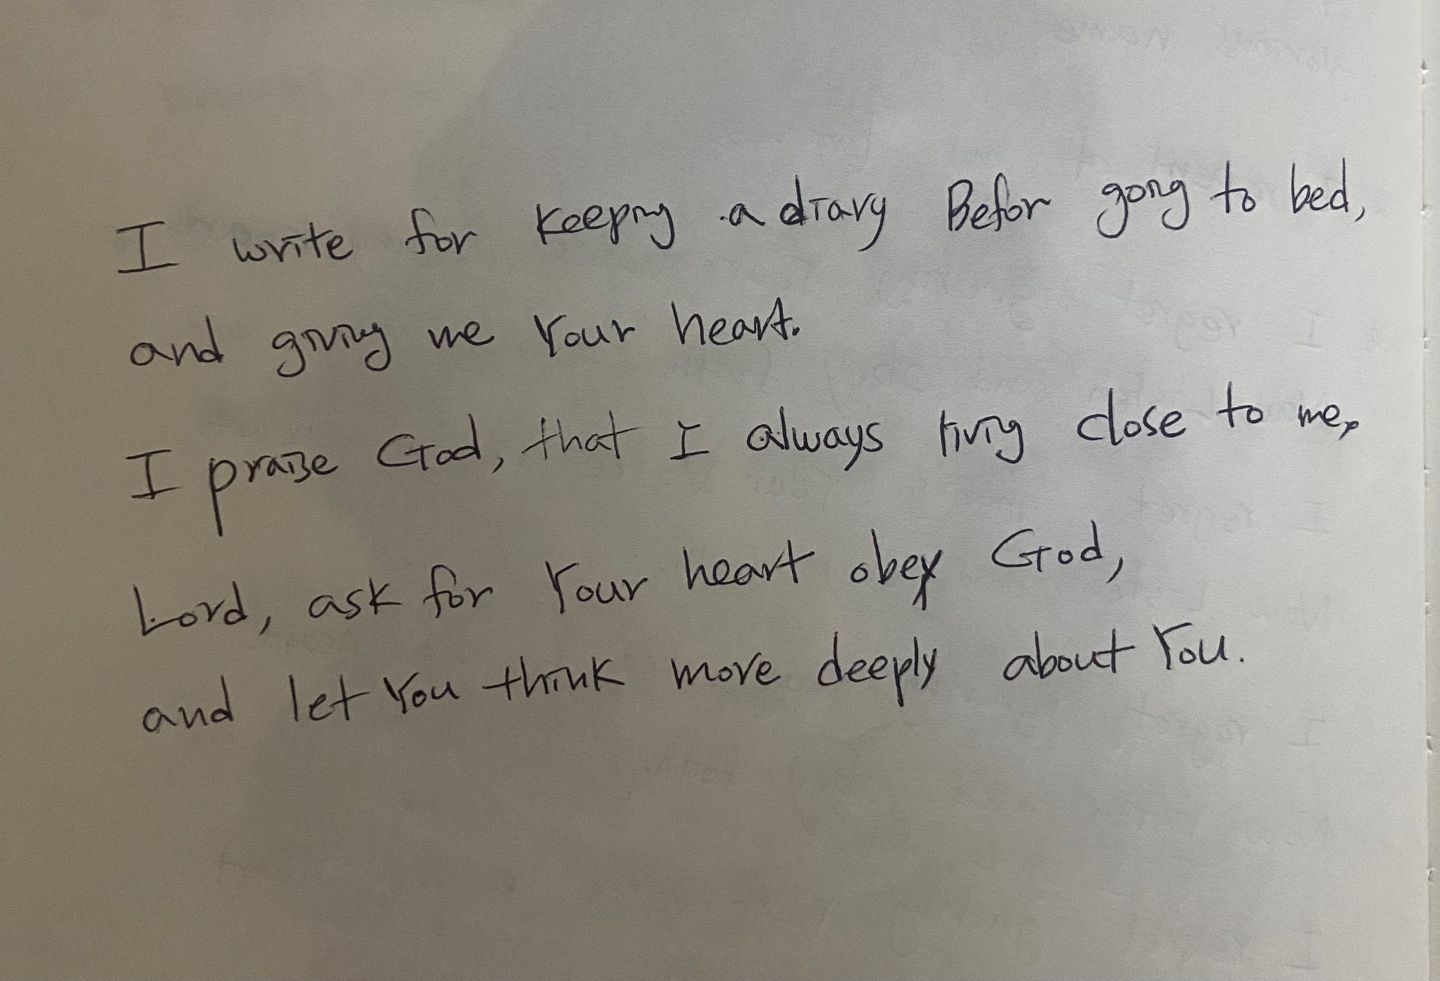 I write for keeping a diary Befor going to bed,
and giving me Your heart.
I praise God, that I always living close to me,
Lord, ask for Your heart obey God,
and let You think more deeply about You.